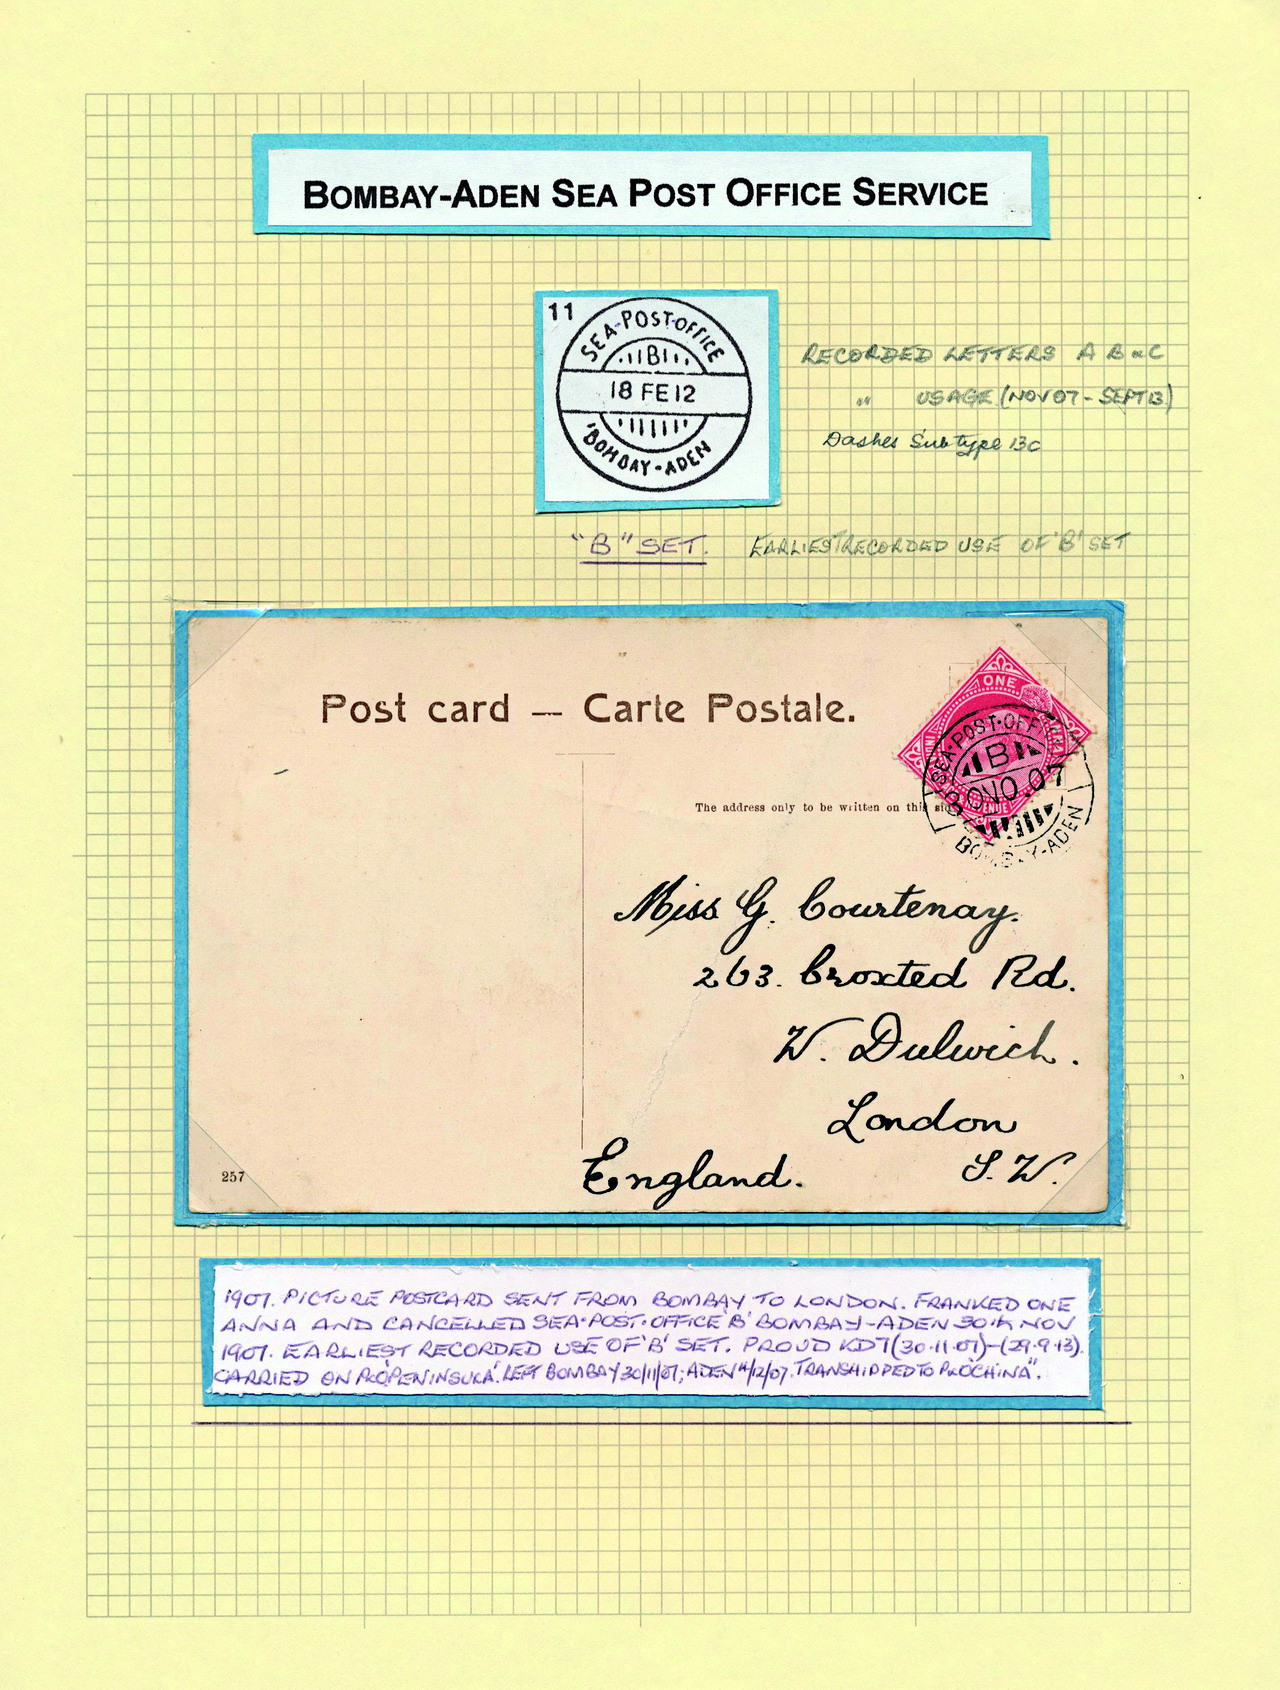 BOMBAY-ADEN SEA POST OFFICE SERVICE
11
SEA-POST-OFFICE
B
18 FE 12
BOMBAY-ADEN
RECORDED LETTERS A B & C
" USAGE (NOV 07 - SEPT 13)
Dashes Subtype 13c
"B" SET. EARLIEST RECORDED USE OF 'B' SET
Post card — Carte Postale.
ONE
SEA-POST-OFF
B
30 NO.07
BOMBAY-ADEN
The address only to be written on this side
Miss G. Courtenay.
263. Croxted Rd.
W. Dulwich.
London
S.W.
England.
257
1907. PICTURE POSTCARD SENT FROM BOMBAY TO LONDON. FRANKED ONE
ANNA AND CANCELLED SEA·POST·OFFICE 'B' BOMBAY-ADEN 30th NOV
1907. EARLIEST RECORDED USE OF 'B' SET. PROUD KD7 (30·11·07)-(29·9·13).
CARRIED ON P&O 'PENINSULA'. LEFT BOMBAY 30/11/07; ADEN 4/12/07. TRANSHIPPED TO P&O CHINA".